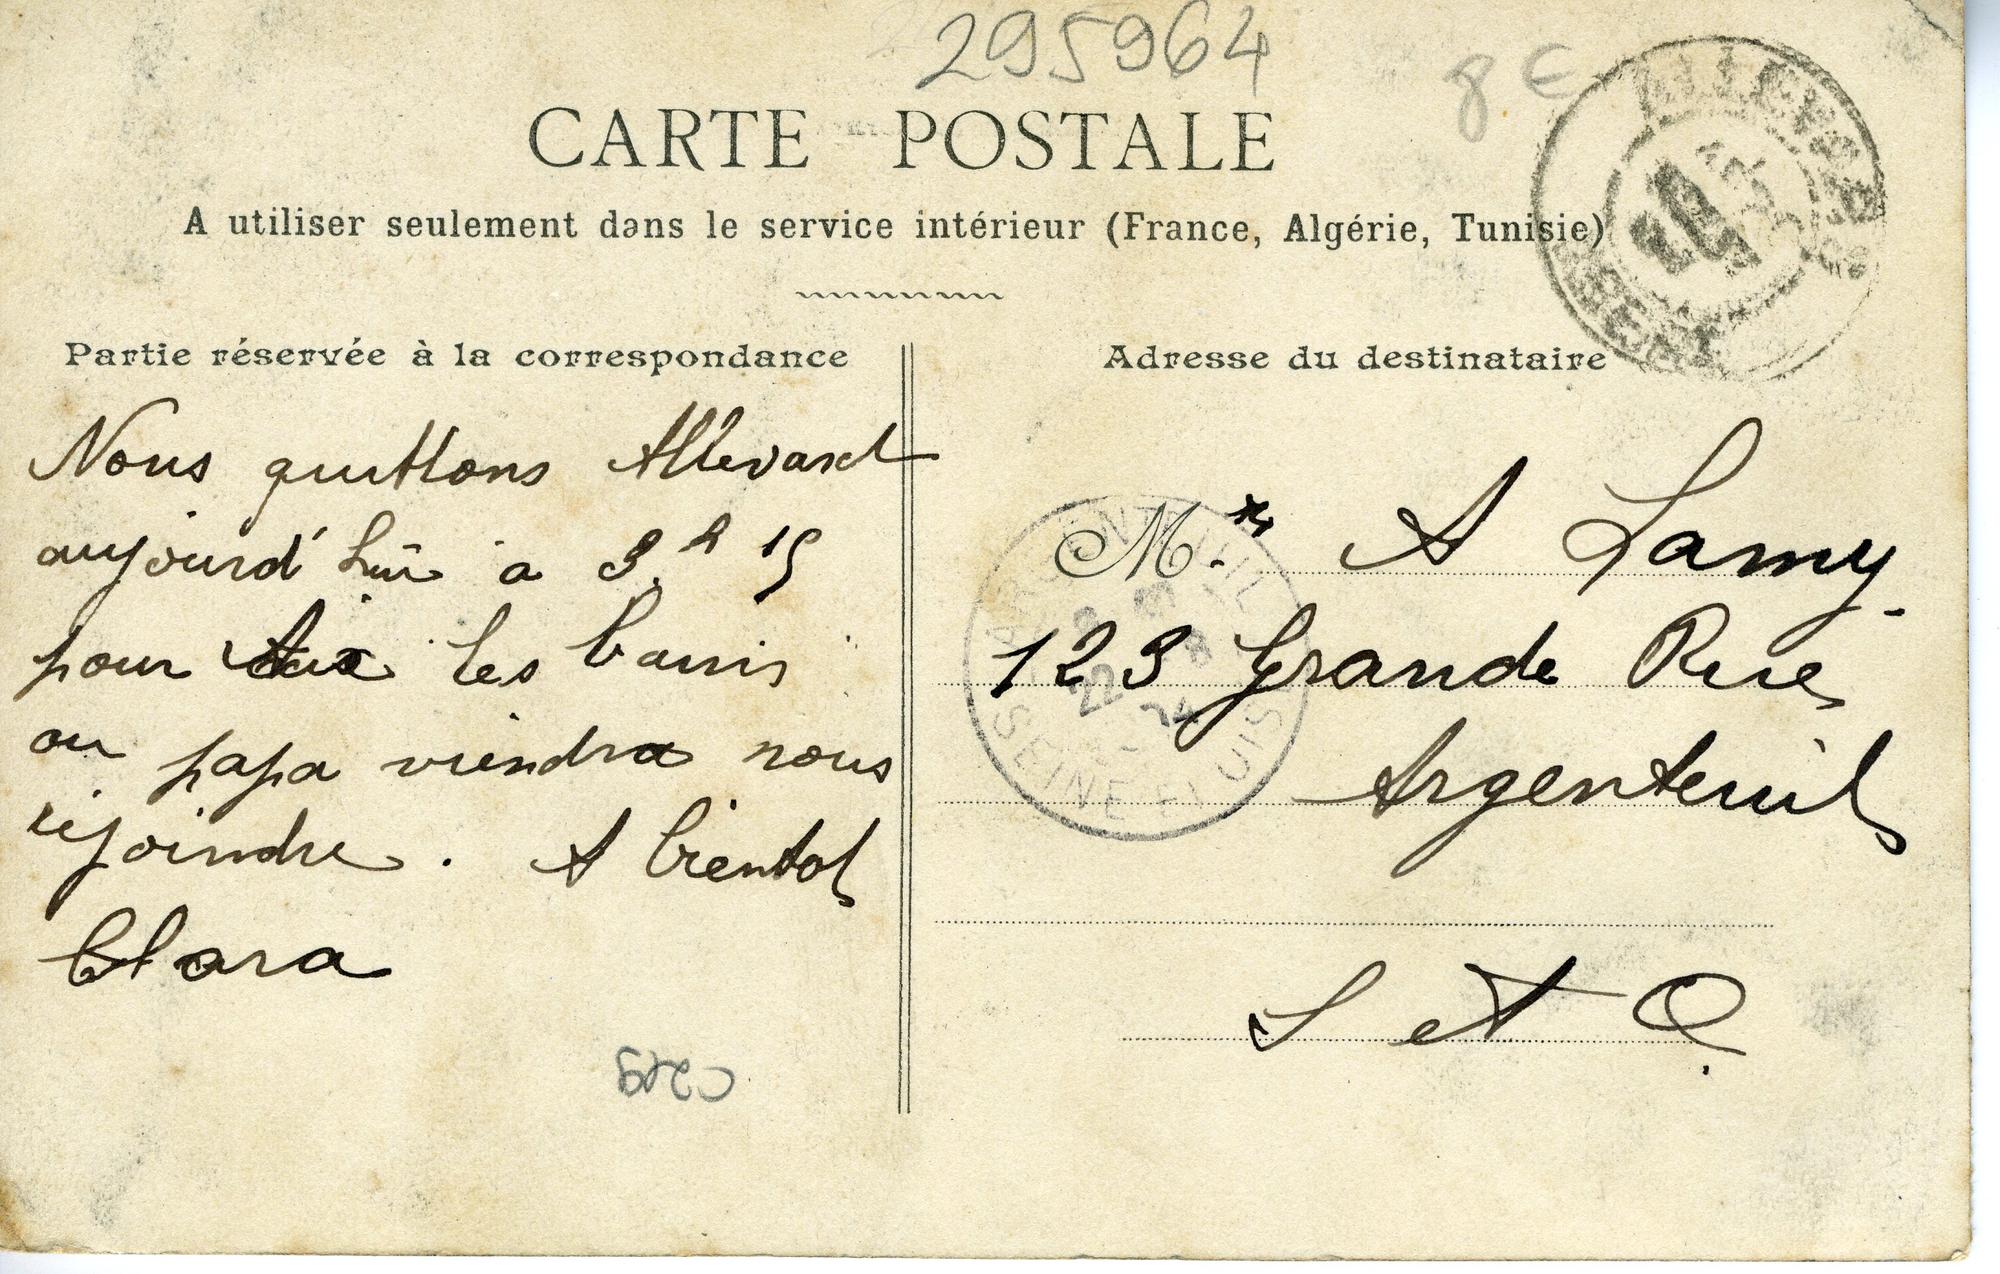 295964
8 €
CARTE POSTALE
A utiliser seulement dans le service intérieur (France, Algérie, Tunisie)
Partie réservée à la correspondance
Adresse du destinataire
Nous quittons Allevard
aujourd'hui à 3h 15
pour Aix les bains
ou papa viendra nous
rejoindre. A bientot
Clara
Mr A Lamy
123 Grande Rue
Argenteuil
S et O.
ARGENTEUIL
22
SEINE ET OISE